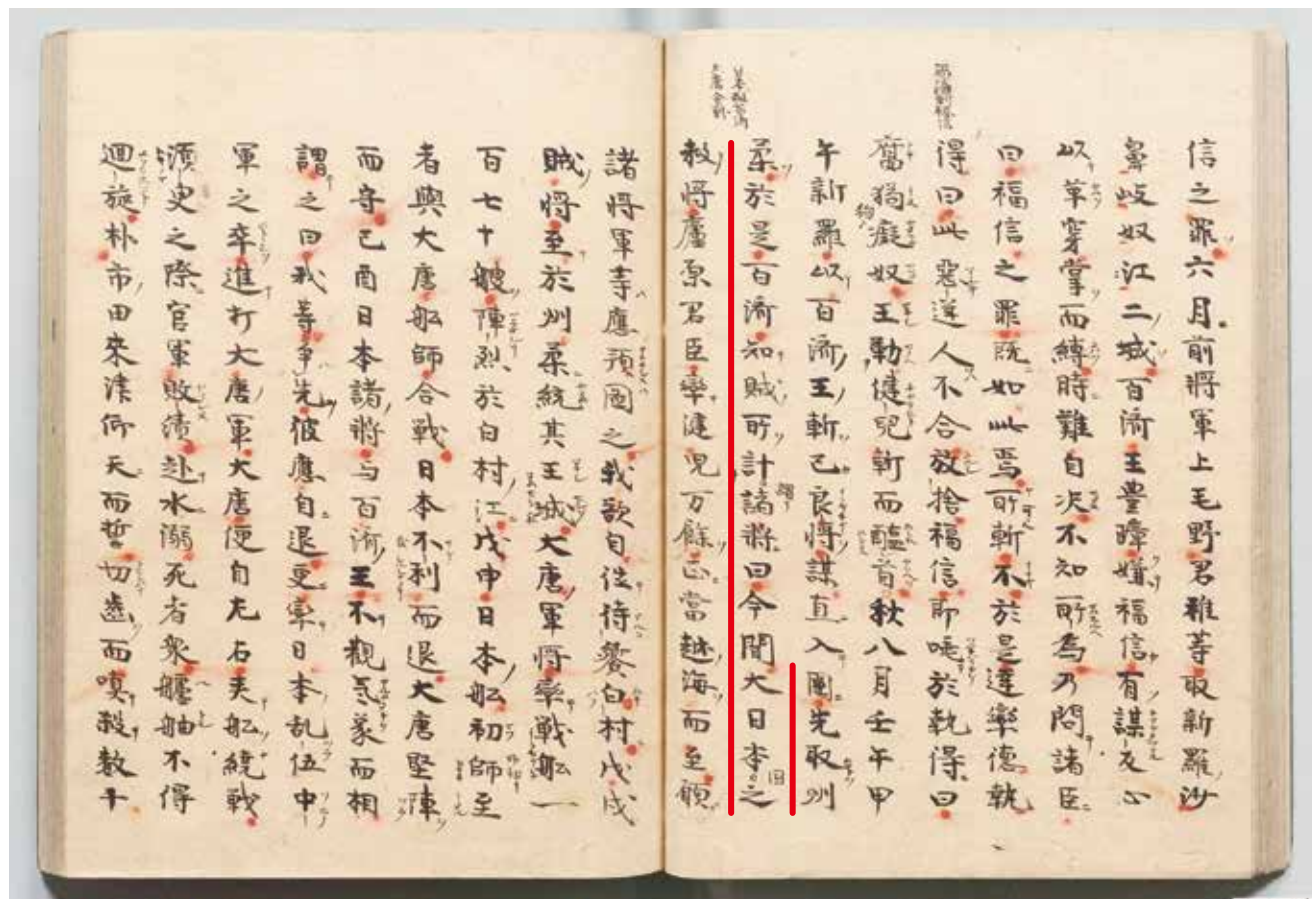 信之罪六月前將軍上毛野君稚等取新羅沙
鼻岐奴江二城百濟王豊璋嫌福信有謀反心
以革穿掌而縛時難自决不知所爲乃問諸臣
曰福信之罪既如此焉可斬不於是達率德執
得曰此惡逆人不合放捨福信即唾於執得曰
腐狗癡奴王勒健児斬而醢首秋八月壬午甲
午新羅以百濟王斬己良將謀直入國先取州
柔於是百濟知賊所計謂諸將曰今聞大日本之
救將廬原君臣率健児万餘正當越海而至願
諸將軍等應預圖之我欲自往待饗白村戊戌
賊將至於州柔繞其王城大唐軍將率戰舩一
百七十艘陣烈於白村江戊申日本舩初師至
者與大唐舩師合戰日本不利而退大唐堅陣
而守己酉日本諸將与百濟王不觀氣象而相
謂之曰我等爭先彼應自退更率日本乱伍中
軍之卒進打大唐軍大唐便自左右夾舩繞戰
須史之際官軍敗績赴水溺死者衆艫舳不得
廻旋朴市田来津仰天而誓切齒而嗔殺數十